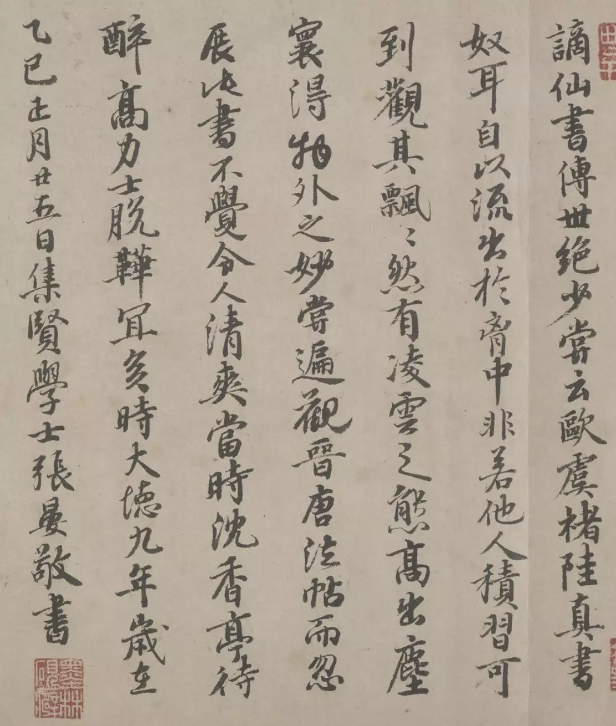 謫仙書傳世絕少嘗云歐虞褚陸真書
奴耳自以流出於胷中非若他人積習可
到觀其飄〻然有凌雲之態高出塵
寰得物外之妙嘗遍觀晉唐法帖而忽
展此書不覺令人清爽當時沈香亭待
醉高力士脫鞾冝矣時大德九年歲在
乙巳正月廿五日集賢學士張晏敬書